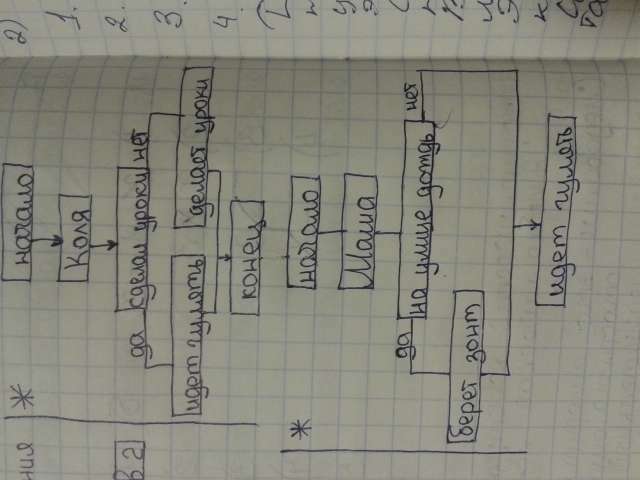 ния
в 2
*
начало
Коля
да сделал уроки нет
идет гулять
делает уроки
конец
*
начало
Маша
да на улице дождь нет
берет зонт
идет гулять
2)
1.
2.
3.
4.